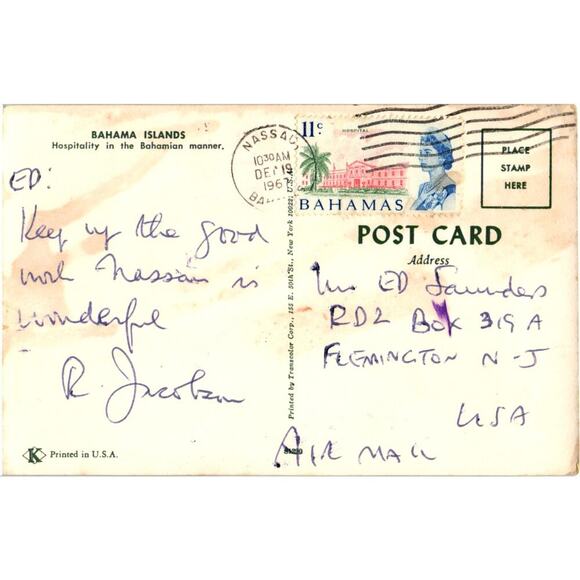 BAHAMA ISLANDS
Hospitality in the Bahamian manner.
ED:
Keep up the good
work Nassau is
wonderful
R. Jacobson
K Printed in U.S.A.
Printed by Transcolor Corp., 155 E. 50th St., New York 10022, U.S.A.
NASSAU
1030 AM
DEC 19
1967
11c.
HOSPITAL
BAHAMAS
PLACE
STAMP
HERE
POST CARD
Address
Mr ED Saunders
RD2 Box 319 A
FLEMINGTON N-J
USA
AIR MAIL